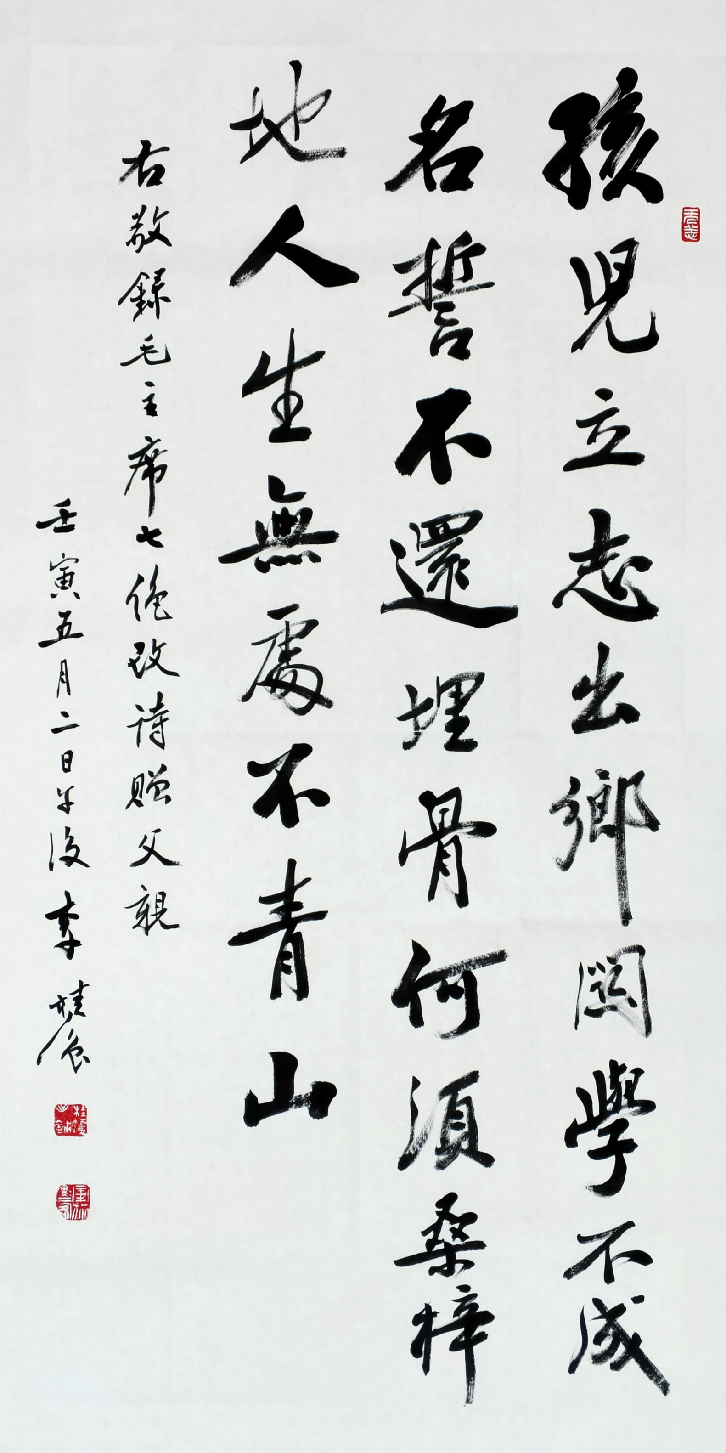 孩児立志出鄉関學不成
名誓不還埋骨何須桑梓
地人生無處不青山
右敬録毛主席七绝改诗赠父親
壬寅五月二日午後李